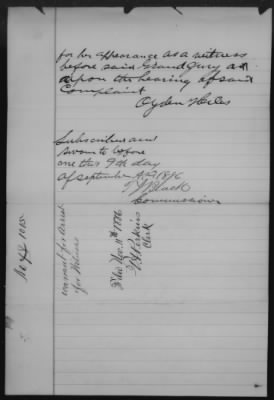 for her appearance as a witness
before said Grand Jury and
upon the hearing of said
Complaint
Ogden
Subscribed and
sworn to before
me this 9th day
of September A.D. 1896
Black
Commissioner
Filed Nov. 11th 1896
Perkins
Clerk
warrant for arrest
for Witness